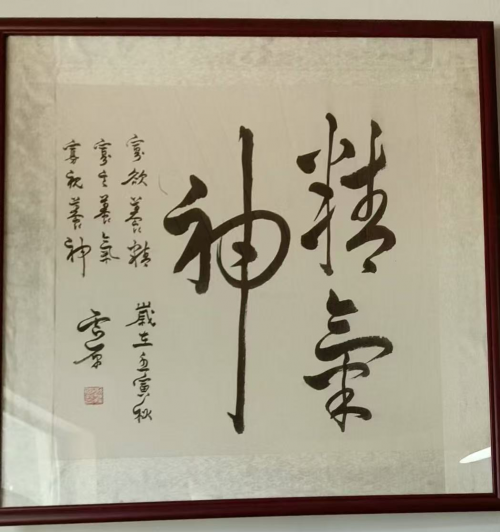 精氣
神
寡欲養精
寡言養氣
寡視養神
歲在壬寅秋